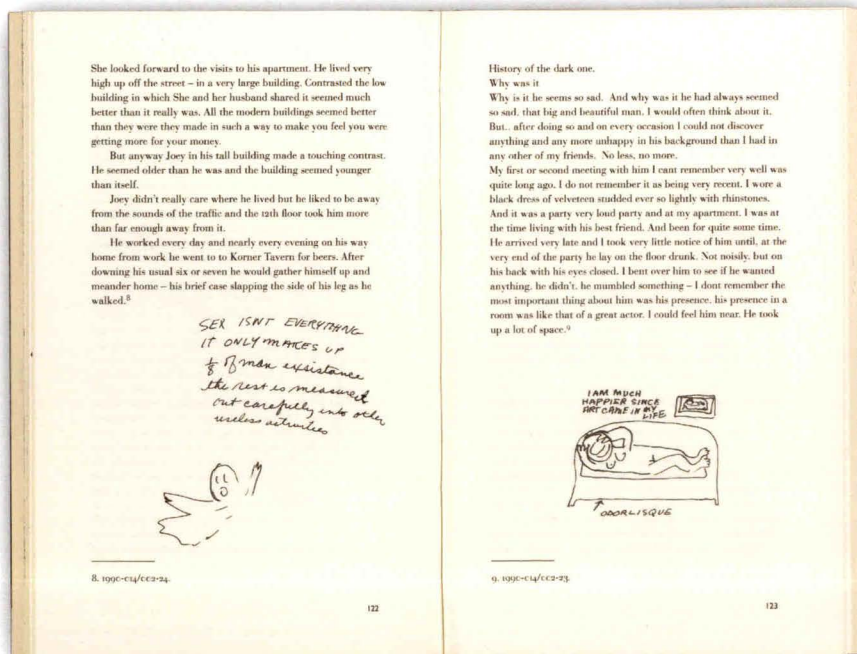 She looked forward to the visits to his apartment. He lived very
high up off the street – in a very large building. Contrasted the low
building in which She and her husband shared it seemed much
better than it really was. All the modern buildings seemed better
than they were they made in such a way to make you feel you were
getting more for your money.
But anyway Joey in his tall building made a touching contrast.
He seemed older than he was and the building seemed younger
than itself.
Joey didn't really care where he lived but he liked to be away
from the sounds of the traffic and the 12th floor took him more
than far enough away from it.
He worked every day and nearly every evening on his way
home from work he went to to Korner Tavern for beers. After
downing his usual six or seven he would gather himself up and
meander home – his brief case slapping the side of his leg as he
walked.8
SEX ISNT EVERYTHING
IT ONLY MAKES UP
1/8 of man exsistance
the rest is measured
out carefully into other
useless activities
8. 1990-C14/CC2-24.
122
History of the dark one.
Why was it
Why is it he seems so sad. And why was it he had always seemed
so sad, that big and beautiful man. I would often think about it.
But.. after doing so and on every occasion I could not discover
anything and any more unhappy in his background than I had in
any other of my friends. No less, no more.
My first or second meeting with him I cant remember very well was
quite long ago. I do not remember it as being very recent. I wore a
black dress of velveteen studded ever so lightly with rhinstones.
And it was a party very loud party and at my apartment. I was at
the time living with his best friend. And been for quite some time.
He arrived very late and I took very little notice of him until, at the
very end of the party he lay on the floor drunk. Not noisily, but on
his back with his eyes closed. I bent over him to see if he wanted
anything, he didn't, he mumbled something – I dont remember the
most important thing about him was his presence, his presence in a
room was like that of a great actor. I could feel him near. He took
up a lot of space.9
I AM MUCH
HAPPIER SINCE
ART CAME IN MY
LIFE
ODORLISQUE
9. 1990-C14/CC2-23.
123